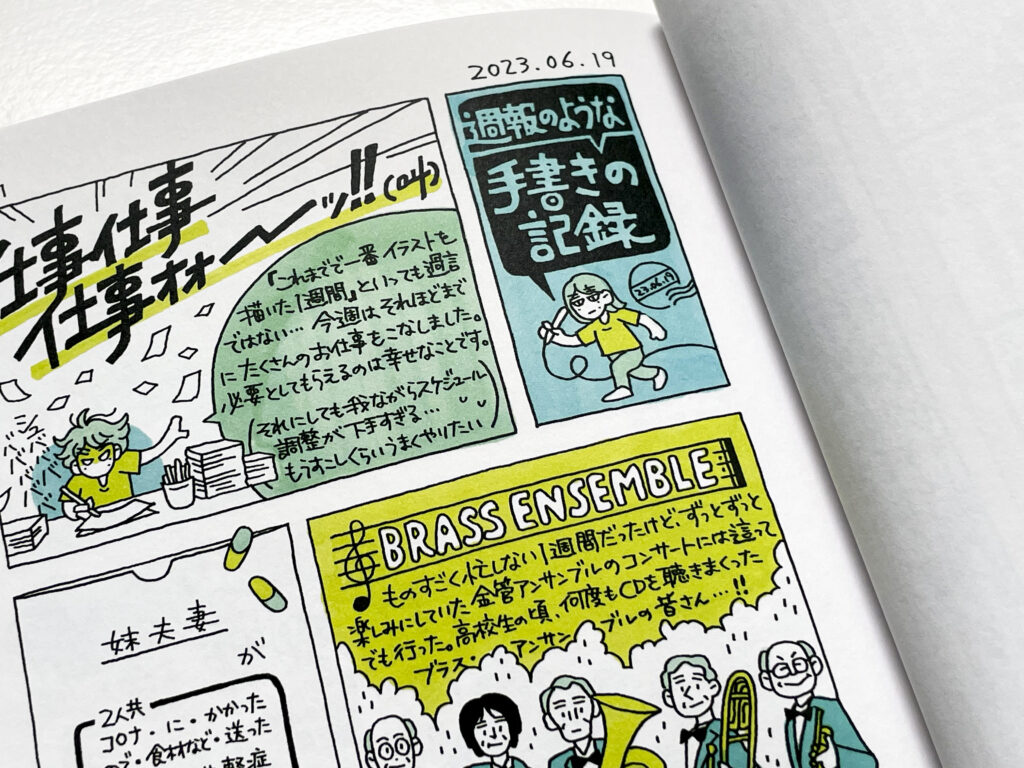 2023.06.19
週報のような
手書きの
記録
23.06.19
仕事仕事
仕事ォォ〜ッ!!(叫)
『これまでで一番イラストを
描いた1週間』といっても過言
ではない… 今週はそれほどまで
にたくさんのお仕事をこなしました。
必要としてもらえるのは幸せなことです。
(それにしても我ながらスケジュール
調整が下手すぎる…
もうすこしぐらいうまくやりたい)
BRASS ENSEMBLE
ものすごく忙しない1週間だったけど、ずっとずっと
楽しみにしていた金管アンサンブルのコンサートには這って
でも行った。高校生の頃、何度もCDを聴きまくった
ブラス・アンサンブルの皆さん…!!
妹夫妻
が
2人共
コロナ・に・かかった
ので・食材など・送った
軽症